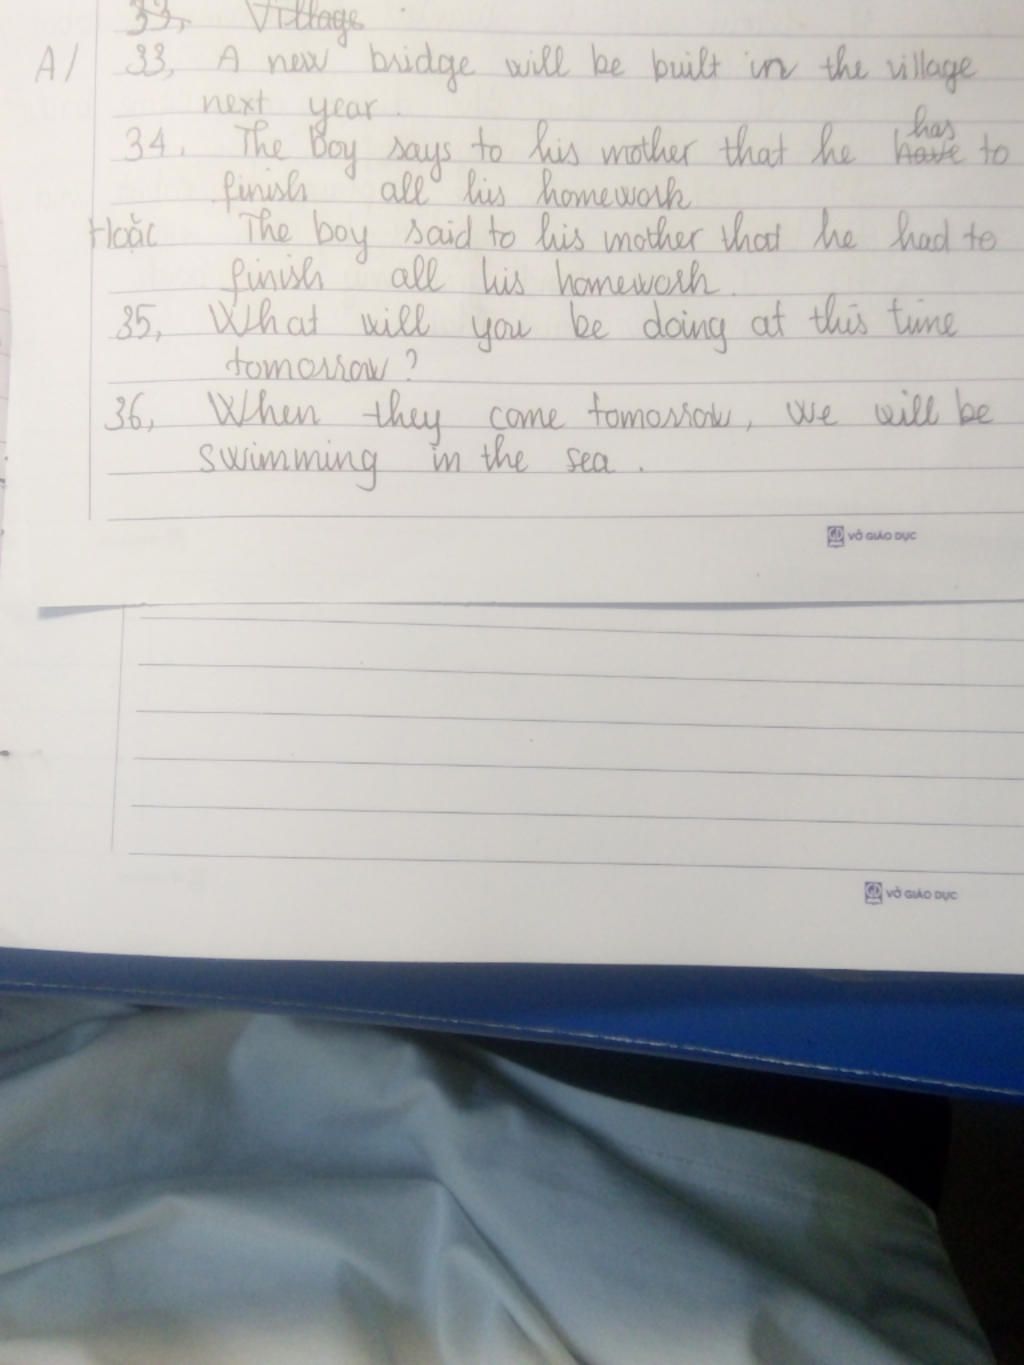 33, Village
A/ 33, A new bridge will be built in the village
next year.
34. The boy says to his mother that he have has to
finish all his homework
Hoặc The boy said to his mother that he had to
finish all his homework.
35, What will you be doing at this time
tomorrow?
36, When they come tomorrow, we will be
swimming in the sea.
VỞ GIÁO DỤC
VỞ GIÁO DỤC